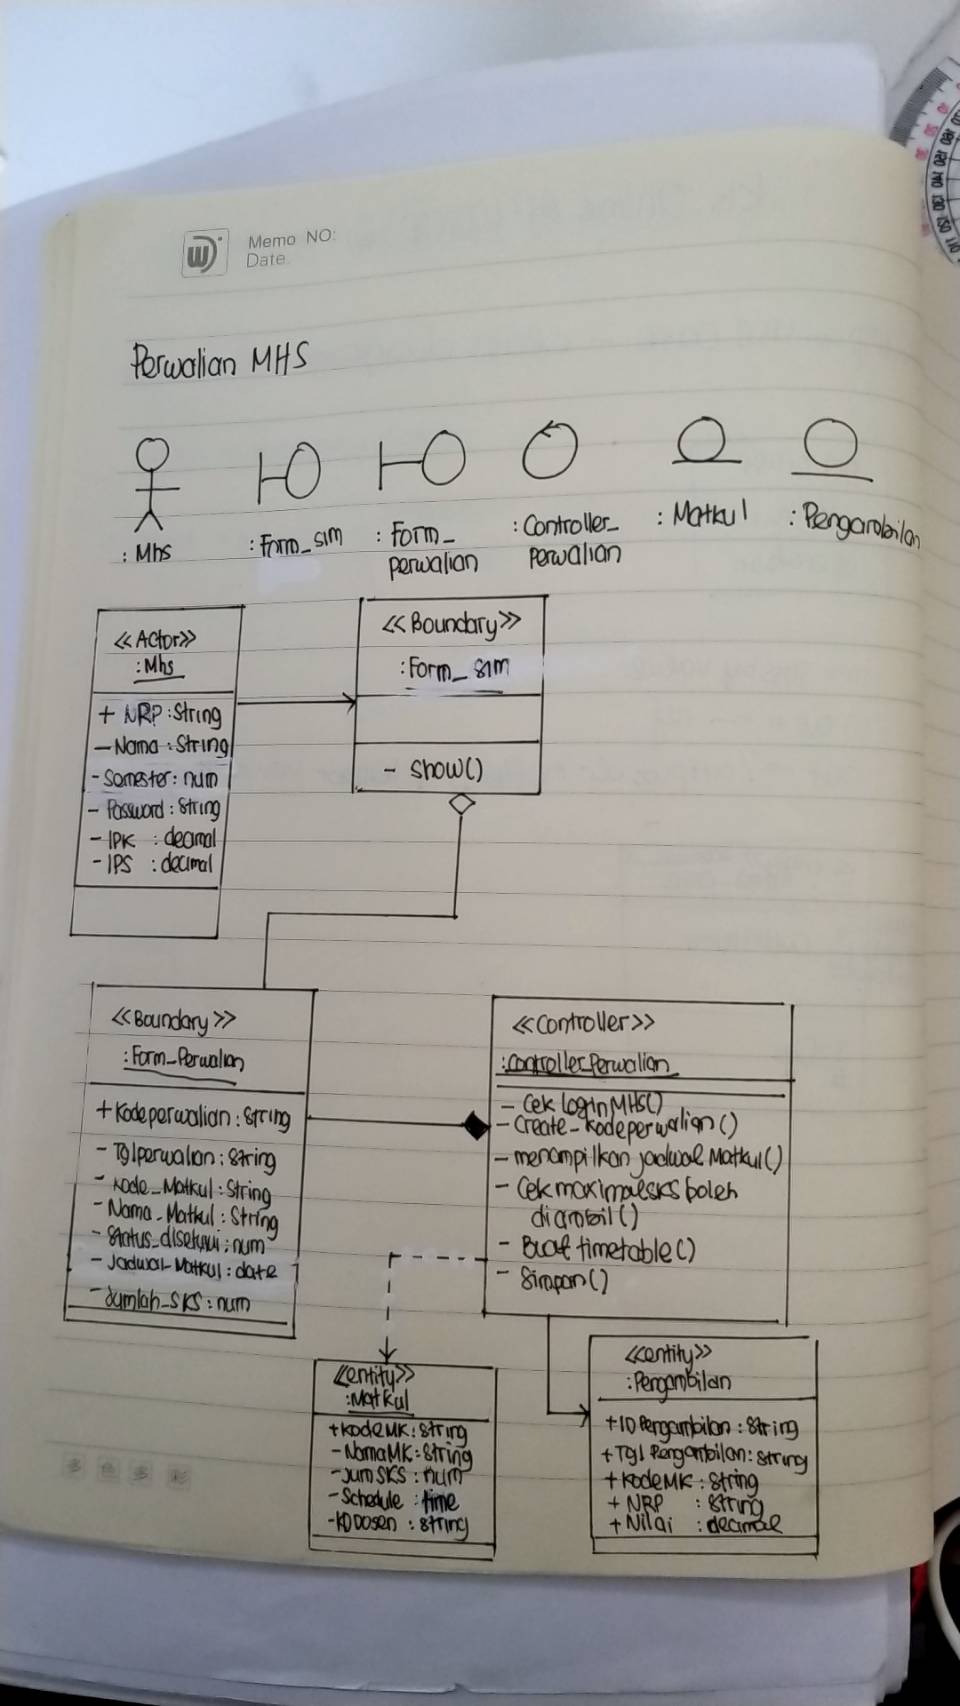 Memo NO:
Date.
Perwalian MHS
: Mhs
: Form_sim
: Form_
perwalian
: Controller_
perwalian
: Matkul
: Pengambilan
<<Actor>>
: Mhs
+ NRP : String
- Nama : String
- Semester : num
- Password : String
- IPK : decimal
- IPS : decimal
<<Boundary>>
: Form_sim
- show()
<<Boundary>>
: Form_Perwalian
+ Kodeperwalian : String
- Tglperwalian : String
- Kode_Matkul : String
- Nama_Matkul : String
- Status_disetujui : num
- Jadwal_Matkul : date
- Jumlah_SKS : num
<<Controller>>
: Controller_Perwalian
- Cek loginMHS()
- Create_kodeperwalian()
- menampilkan jadwal Matkul()
- Cek maximalsks boleh
diambil()
- Buat timetable()
- Simpan()
<<entity>>
: Matkul
+ KodeMK : String
- NamaMK : String
- JumSKS : num
- Schedule : time
- KDDosen : String
<<entity>>
: Pengambilan
+ ID Pengambilan : String
+ Tgl Pengambilan : String
+ KodeMK : String
+ NRP : String
+ Nilai : decimal